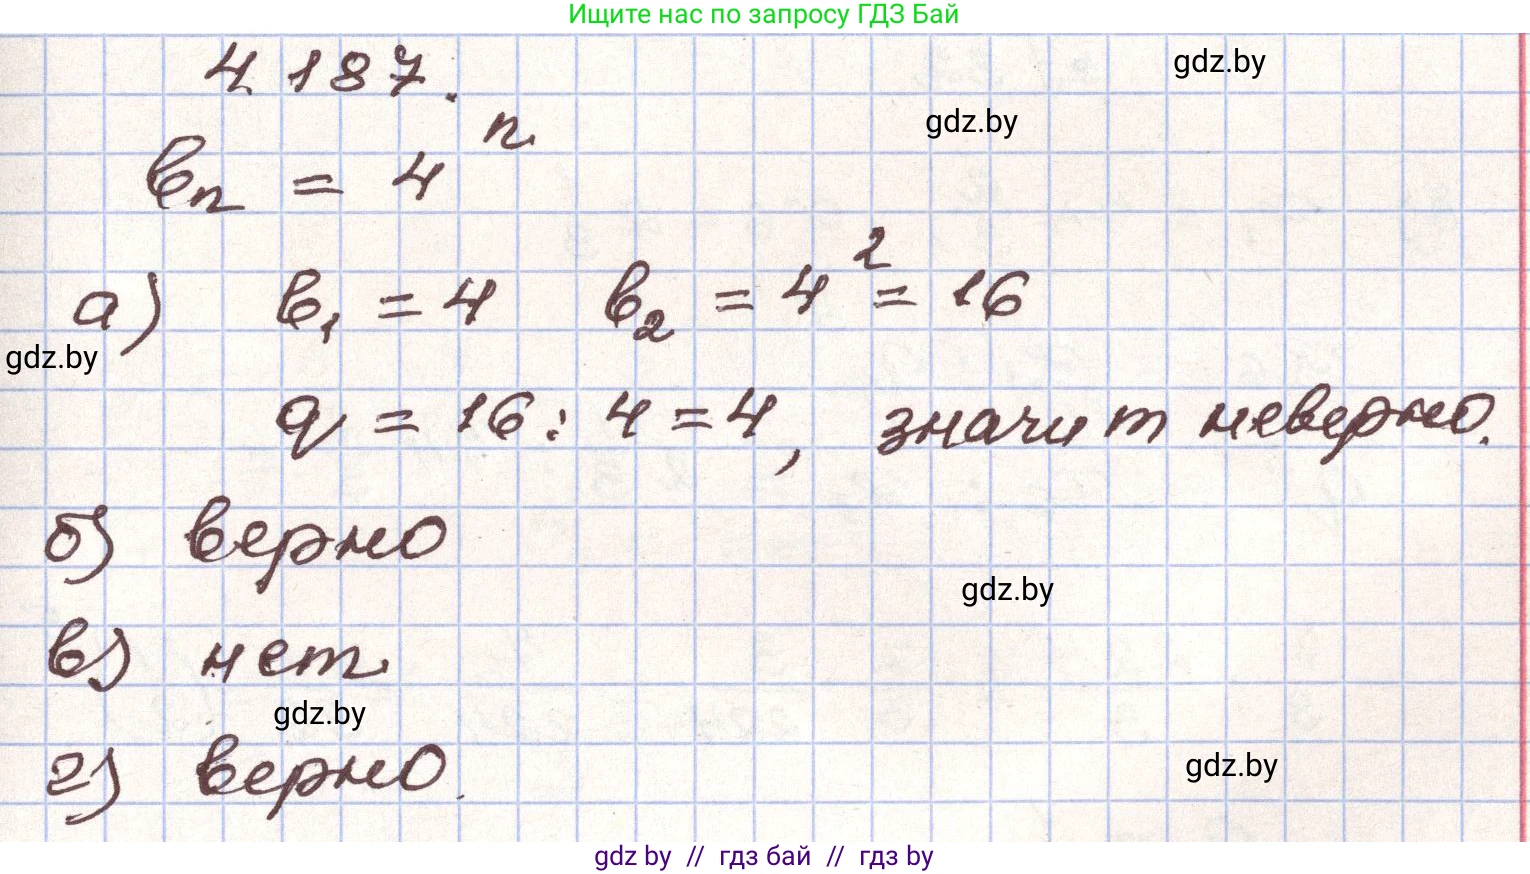 Ищите нас по запросу ГДЗ Бай
4.187.
gdz.by
gdz.by
bₙ = 4ⁿ
а) b₁ = 4 b₂ = 4² = 16
gdz.by
q = 16 : 4 = 4, значит неверно.
б) верно
gdz.by
в) нет
gdz.by
г) верно.
gdz.by
gdz by // гдз бай // гдз by